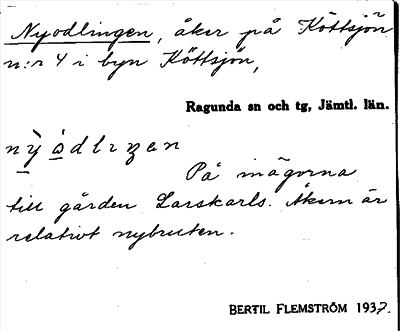 Nyodlingen, åker på Köttsjön
n:r 4 i byn Köttsjön,
Ragunda sn och tg, Jämtl. län.
På inägorna
till gården Larskarls. Åkern är
relativt nybruten.
BERTIL FLEMSTRÖM 1937.